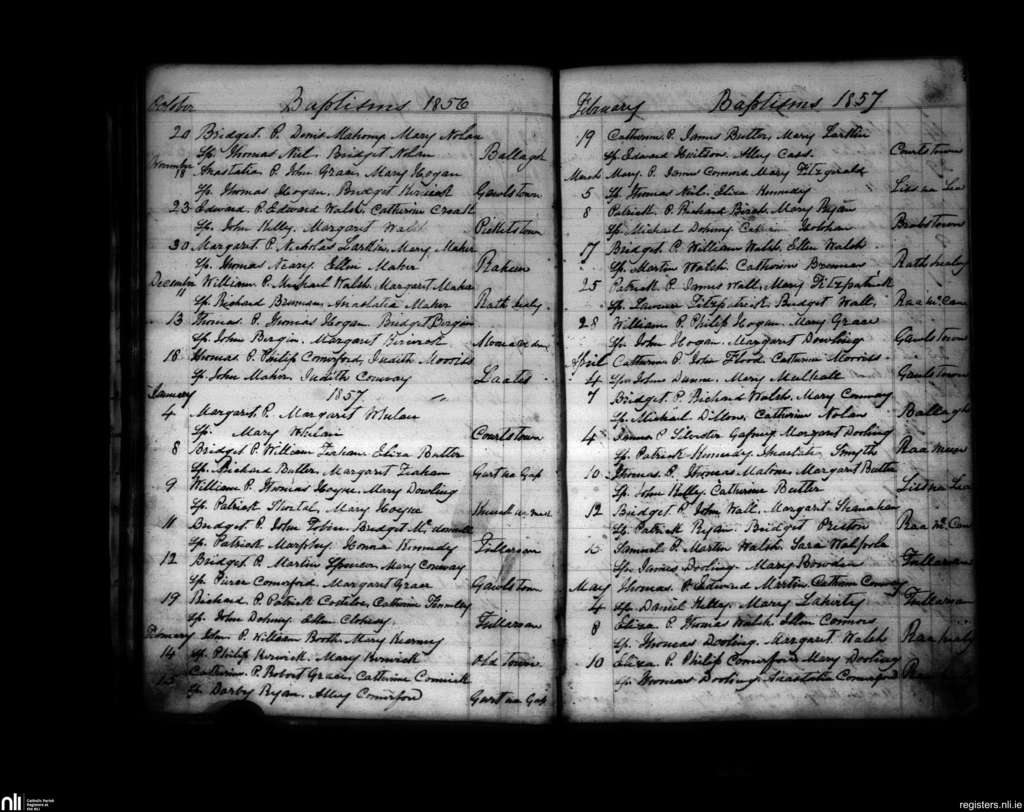 October Baptisms 1856
20 Bridget P. Denis Mahony Mary Nolan
Sp. Thomas Neil. Bridget Nolan Ballagh
November 18 Anastatia P. John Grace, Mary Hogan
Sp. Thomas Hogan. Bridget Gawlstown
23 Edward. P. Edward Walsh, Catherine
Sp. John Kelly. Margaret Walsh
30 Margaret P. Nicholas Larkin, Mary Maher
Sp. Thomas Neary. Ellen Maher
December William P. Michael Walsh, Margaret Maher
11 Sp. Richard Brennan, Anastatia Maher Rathhealy
13 Thomas. P. Thomas Hogan. Bridget Bergin
Sp. John Bergin. Margaret
18 Thomas P. Philip Comerford, Judith Morriss
Sp. John Maher. Judith Conway
January 1857. "
4 Margaret P. Margaret Whelan
Sp. Mary Whelan Courtstown
8 Bridget P. William Eliza Butler
Sp. Richard Butler, Margaret Gurt na Gap
9 William P. Thomas Hoyne, Mary Dowling
Sp. Patrick Mary Hoyne
11 Bridget. P. John Tobin. Bridget
Sp. Patrick Murphy. Honna Kennedy Tullaroan
12 Bridget. P. Martin Spencer Mary Conway
Sp. Pierce Comerford, Margaret Grace Gawlstown
19 Richard. P. Patrick Costelloe, Catherine
Sp. John Doheny. Ellen Tullaroan
February John. P. William Booth. Mary Kearney
14 Sp. Philip Kerwick. Mary Kerwick Old Town
15 Catherine. P. Robert Grace, Catherine
Sp. Darby Ryan. Alley Comerford Gurt na Gap
February Baptisms 1857
19 Catherine. P. James Butler, Mary Larkin
Sp. Edward Alley Cass Courtstown
March Mary. P. James Mary Fitzgerald
5 Sp. Thomas Neil. Eliza Kennedy Lis na Lea
8 Patrick. P. Richard Birch. Mary Ryan
Sp. Michael Doheny Holohan
17 Bridget. P. William Walsh. Ellen Walsh
Sp. Martin Walsh. Catherine Brennan Rathhealy
25 Patrick P. James Wall. Mary Fitzpatrick
Sp. Fitzpatrick. Bridget Wall.
28 William P. Philip Hogan. Mary Grace
Sp. John Hogan. Margaret Dowling Gawlstown
April Catherine P. John Flood. Catherine Morriss
4 Sp. John Dunne. Mary Mulhall Gawlstown
7 Bridget. P. Richard Walsh. Mary Conway
Sp. Michael Dillon. Catherine Nolan Ballagh
4 P. Silvester Margaret Dooling
Sp. Patrick Kennedy. Anastatia Smyth
10 Thomas. P. Thomas Malone. Margaret Butler
Sp. John Kelly. Catherine Butler Lis na Lea
12 Bridget P. John Wall. Margaret Shanahan
Sp. Patrick Ryan. Bridget
13 Samuel P. Martin Walsh. Sara Walpole
Sp. James Dooling. Mary Bowden Tullaroan
May Thomas. P. Edward Martin Catherine Conway
4 Sp. Daniel Kelly. Mary Laherty Tullaroan
8 Eliza P. Thomas Walsh. Ellen Connors
Sp. Thomas Dooling. Margaret Walsh
10 Eliza. P. Philip Comerford Mary Dooling
Sp. Thomas Dooling. Anastatia Comerford
nli Catholic Parish Registers at the NLI
registers.nli.ie